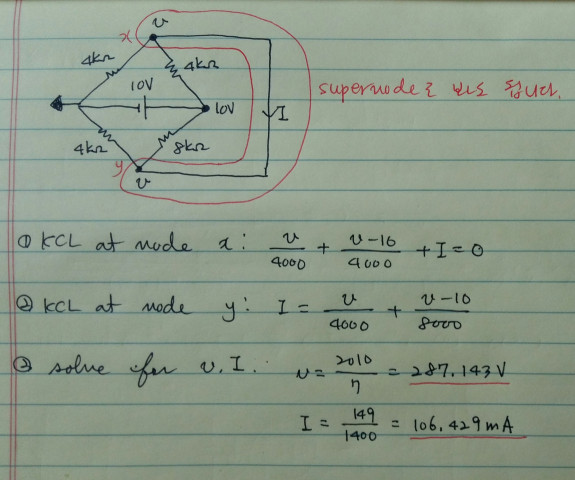 v
x
4kΩ 4kΩ
10V
10V
I
supernode로 봐도 됩니다.
4kΩ 8kΩ
y
v
① KCL at node x: v/4000 + v-10/4000 + I = 0
② KCL at node y: I = v/4000 + v-10/8000
③ solve for v, I: v = 2010/7 = 287.143V
I = 149/1400 = 106.429mA